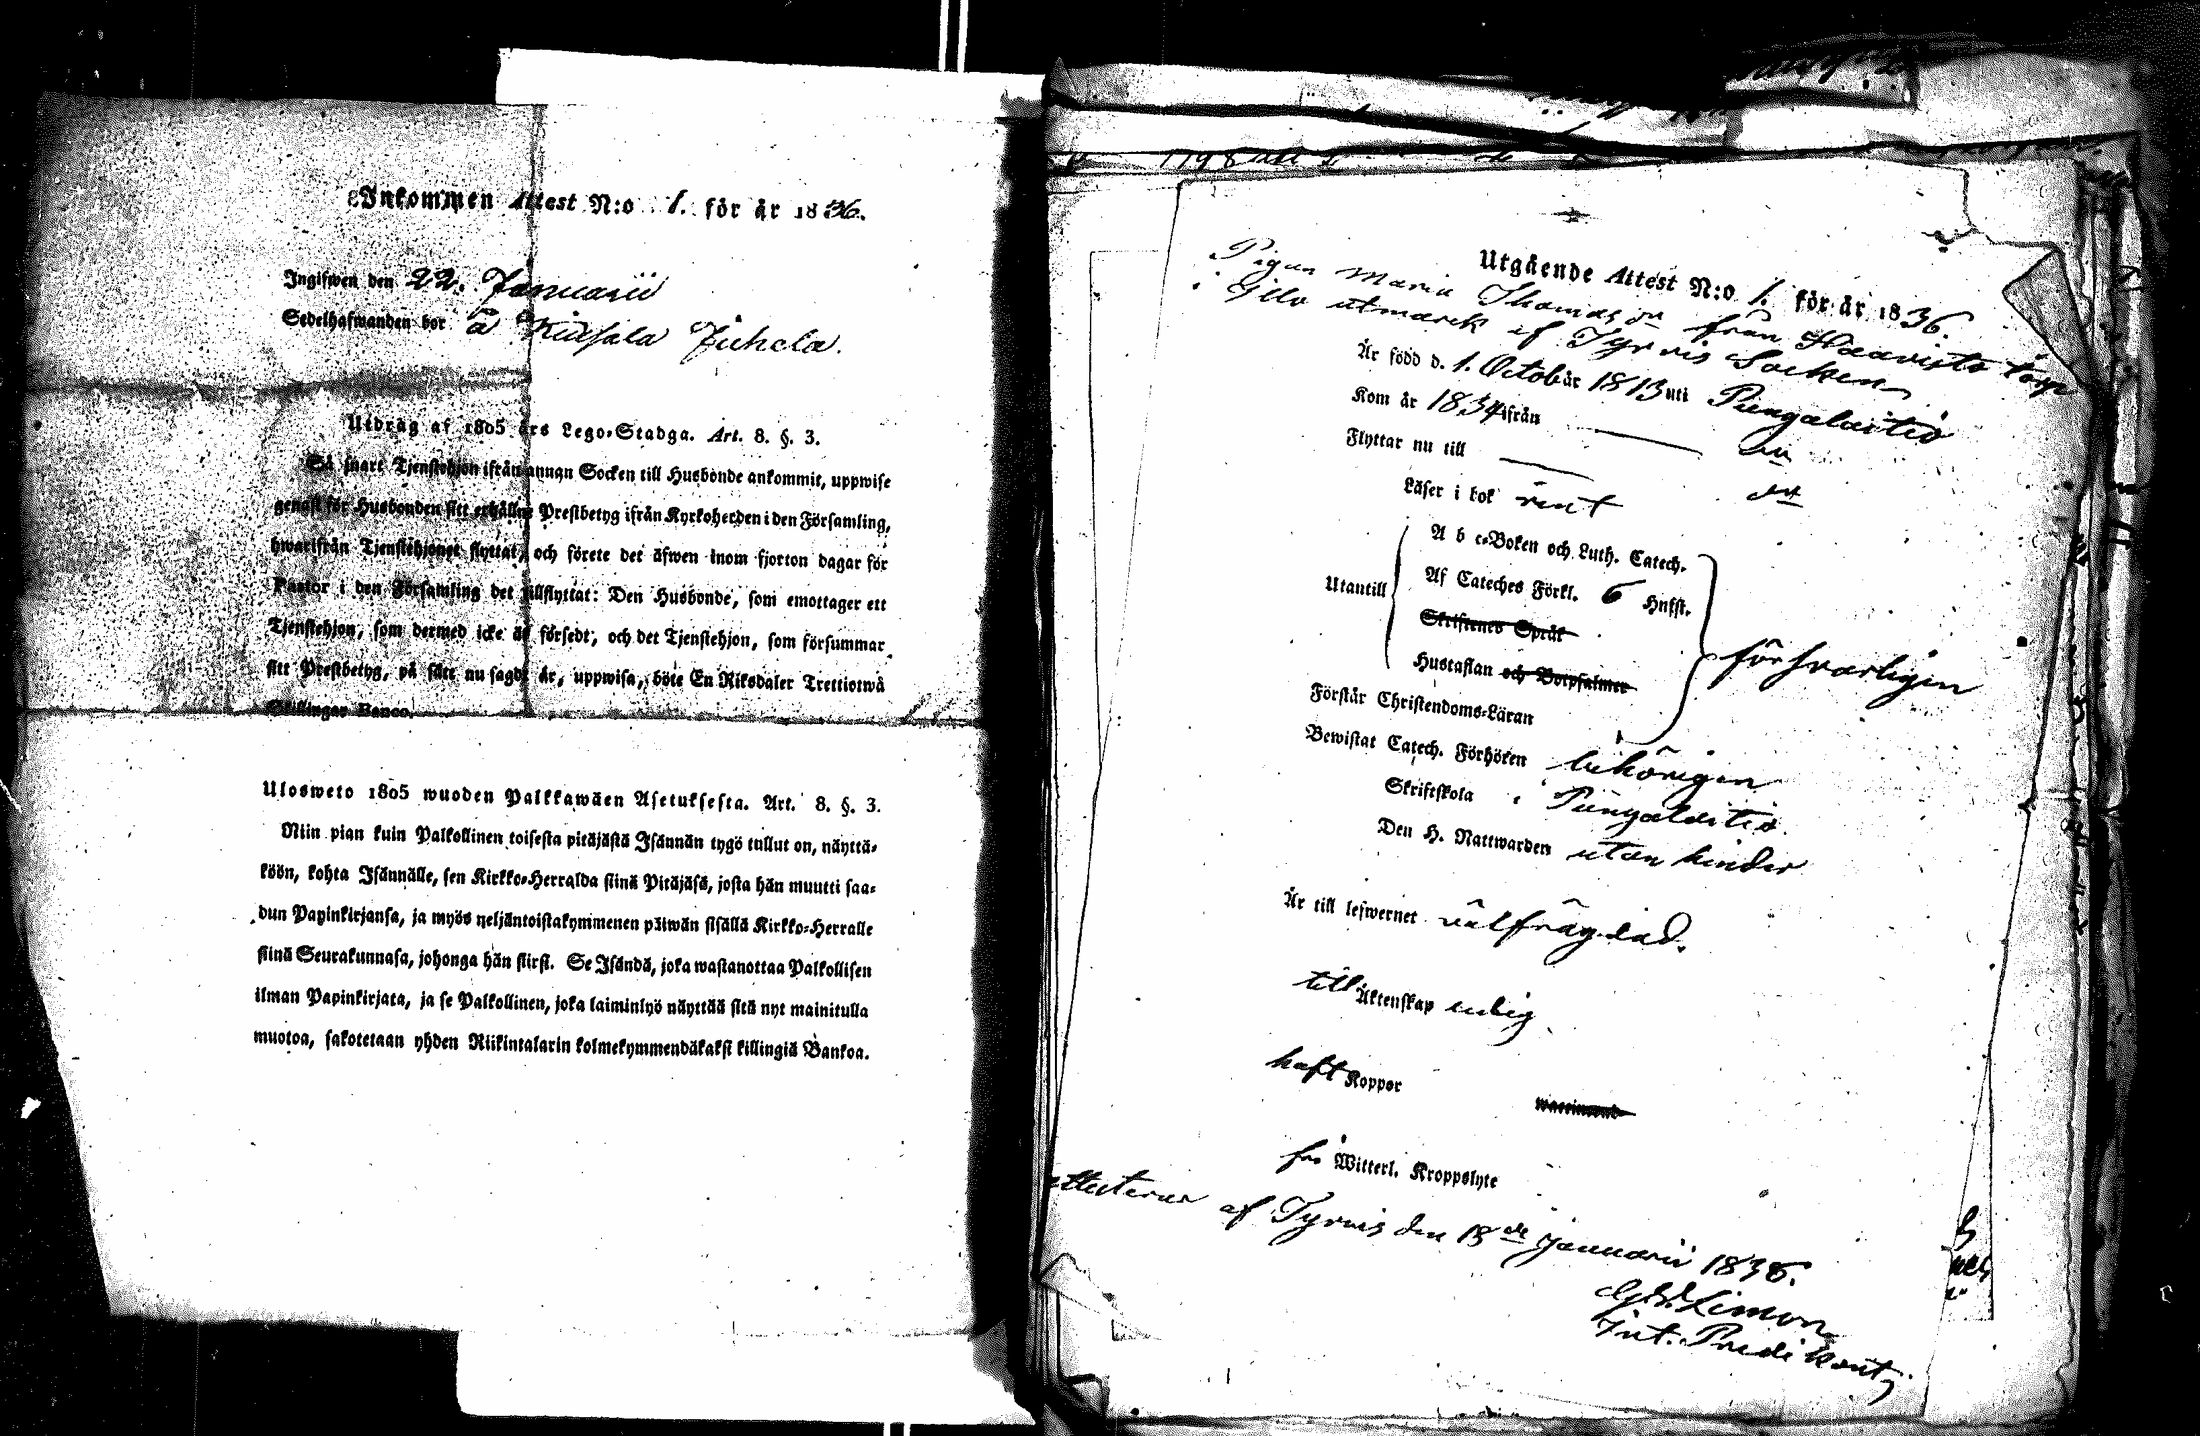 Inkommen Attest N:o 1. för år 1836.
Ingifwen den 22. Januarii
Sedelhafwanden bor å Kiusala Juhela.
Utdrag af 1805 års Lego-Stadga. Art. 8. §. 3.
Så snart Tjenstehjon ifrån annan Socken till Husbonde ankommit, uppwise
genast för Husbonden sitt erhållne Prestbetyg ifrån Kyrkoherden i den Församling,
hwarifrån Tjenstehjonet flyttat, och förete det äfwen inom fjorton dagar för
Pastor i den Församling det tillflyttat: Den Husbonde, som emottager ett
Tjenstehjon, som dermed icke är försedt, och det Tjenstehjon, som försummar
sitt Prestbetyg, på sätt nu sagdt är, uppwisa, böte En Riksdaler Trettiotwå
Skillingar Banco.
Ulosweto 1805 wuoden Palkkawäen Asetuksesta. Art. 8. §. 3.
Niin pian kuin Palkollinen toisesta pitäjästä Isännän tygö tullut on, näyttä-
köön, kohta Isännälle, sen Kirkko-Herralda siinä Pitäjäsä, josta hän muutti saa-
dun Papinkirjansa, ja myös neljäntoistakymmenen päiwän sisällä Kirkko-Herralle
siinä Seurakunnasa, johonga hän siirsi. Se Isändä, joka wastanottaa Palkollisen
ilman Papinkirjata, ja se Palkollinen, joka laiminlyö näyttää sitä nyt mainitulla
muotoa, sakotetaan yhden Riikintalarin kolmekymmendäkaksi killingiä Bankoa.
Utgående Attest N:o 1. för år 1836.
Pigan Maria Thomas dr från Haavisto torp
i Illo utmark af Tyrvis Socken
Är född d. 1. October 1813 uti Pungalaitio
Kom år 1834 ifrån — du
Flyttar nu till — do
Läser i bok rent
A b c-Boken och Luth. Catech.
Utantill Af Cateches Förkl. 6 Hufst.
Skriftenes Språk
Hustaflan och Botpsalmer försvarligen
Förstår Christendoms-Läran
Bewistat Catech. Förhören behörigen
Skriftskola i Pungalaitio.
Den H. Nattwarden utan hinder
Är till lefwernet välfrägdad.
till Äktenskap ledig
haft Koppor
waccinerad
fri Witterl. Kroppslyte
attesterar af Tyrvis den 18de Januarii 1836.
Limon
Int. Predikant